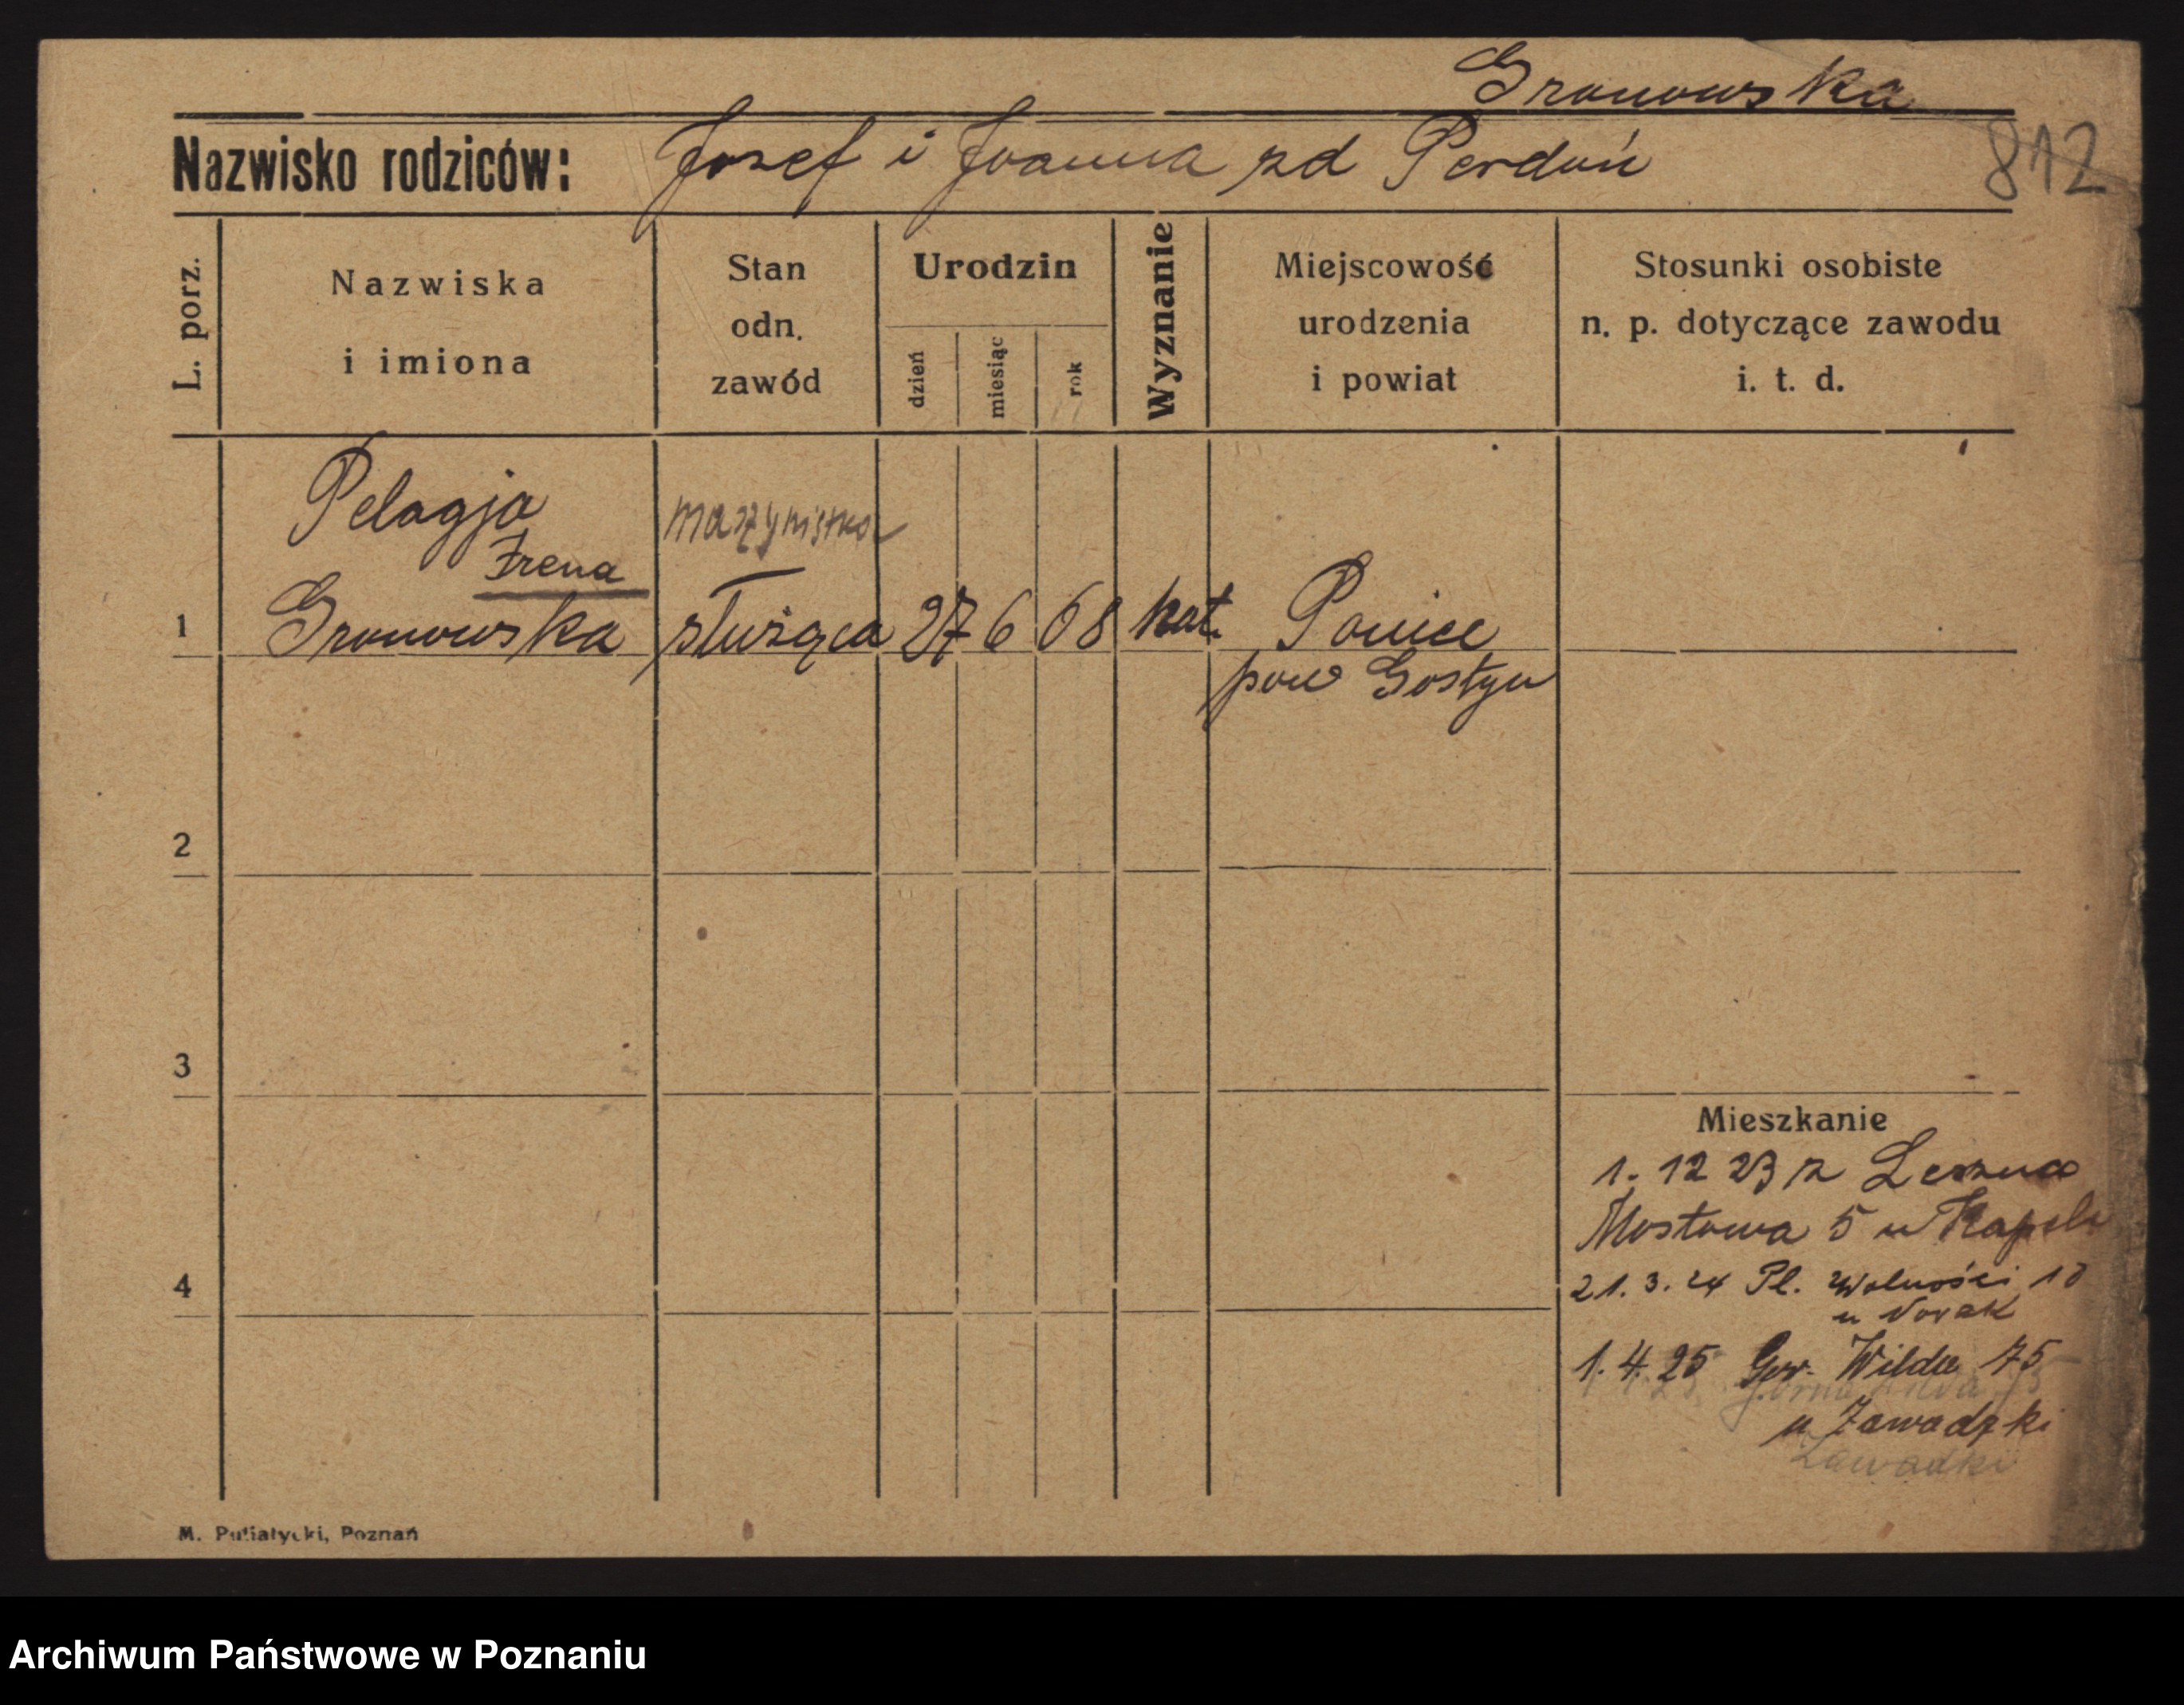 Gronowska
Nazwisko rodziców: Jozef i Joanna zd Perdoń
812
L. porz.
Nazwiska
i imiona
Stan
odn.
zawód
Urodzin
dzień
miesiąc
rok
Wyznanie
Miejscowość
urodzenia
i powiat
Stosunki osobiste
n. p. dotyczące zawodu
i. t. d.
Pelagja
maszynistka
Irena
1 Gronowska służąca 27 6 08 kat. Poniec
pow Gostyn
2
3
Mieszkanie
1. 12 23 z Leszna
Mostowa 5 u
4
21. 3. 24 Pl. Wolności 18
u Novak
1. 4. 25 Gor. Wilda 75
u Zawadzki
Zawadzki
M. Putiatycki, Poznań
Archiwum Państwowe w Poznaniu